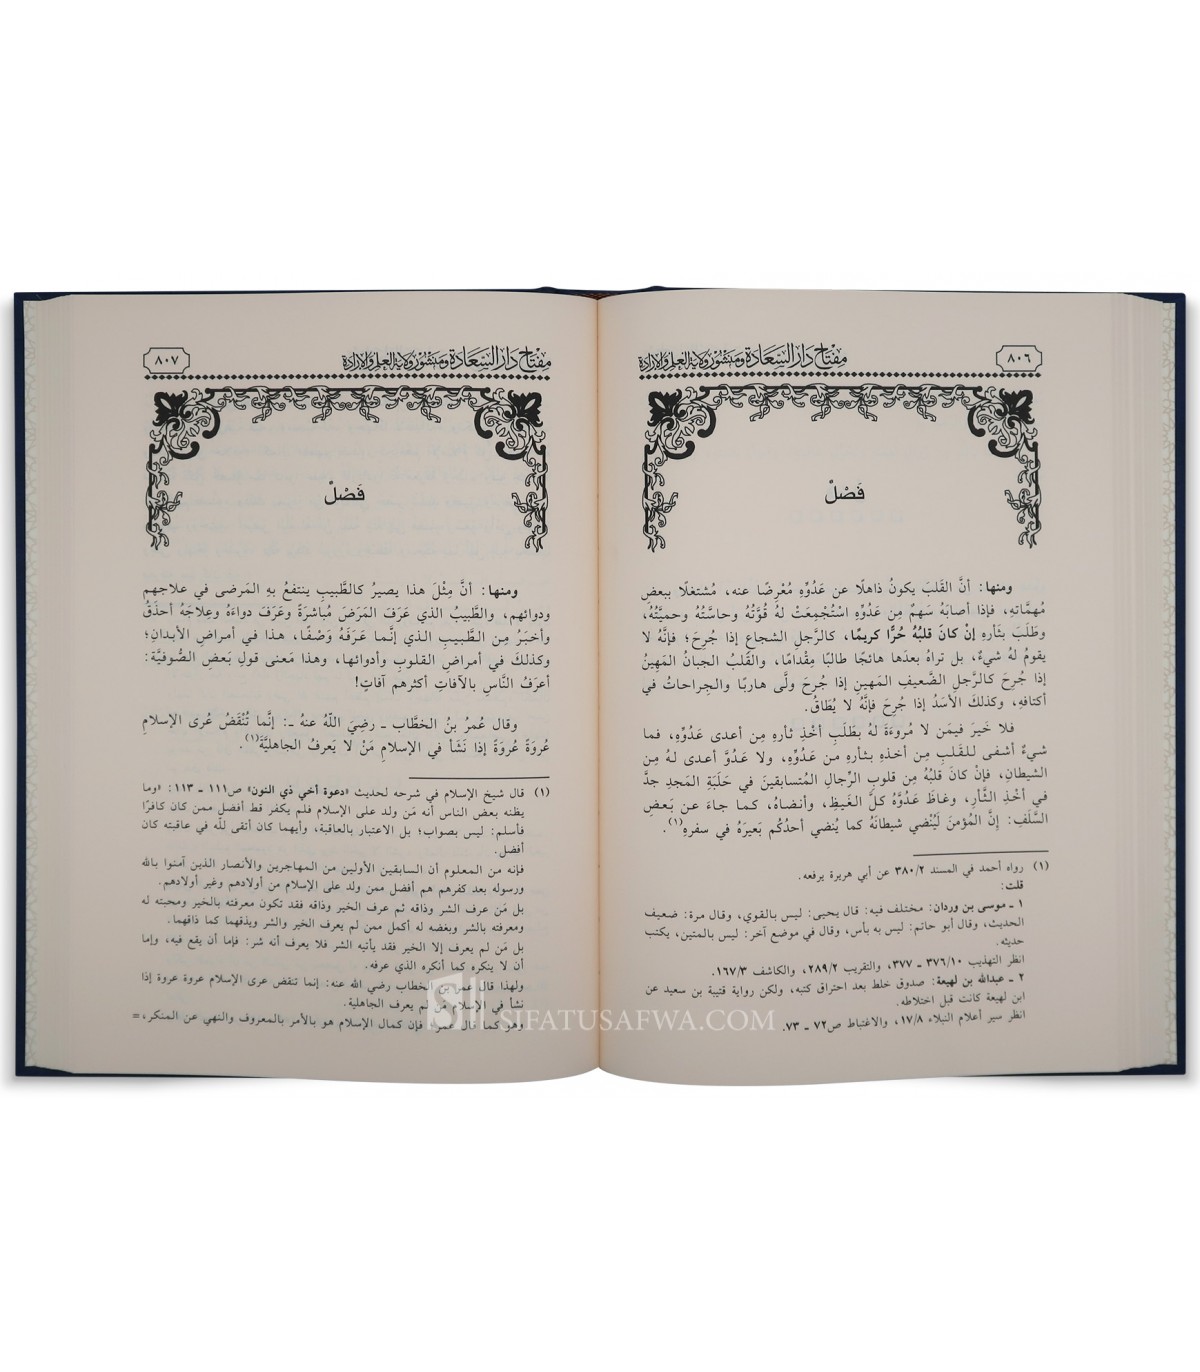 ٨٠٦
مفتاح دار السعادة ومنشور ولاية العلم والإرادة
فَصْلٌ
ومنها: أنَّ القلبَ يكونُ ذاهلًا عن عَدُوِّهِ مُعْرِضًا عنه، مُشتغلًا ببعضِ
مُهِمَّاتهِ، فإذا أصابَهُ سَهمٌ مِن عَدُوِّهِ اسْتُجْمِعَتْ لهُ قُوَّتُهُ وحاسَّتُهُ وحميَّتُهُ،
وطَلَبَ بثأرهِ إنْ كانَ قلبُهُ حُرًّا كريمًا، كالرَّجلِ الشجاعِ إذا جُرِحَ؛ فإنَّهُ لا
يقومُ لهُ شيءٌ، بل تراهُ بعدَها هائجًا طالبًا مِقْدامًا، والقلبُ الجبانُ المَهينُ
إذا جُرِحَ كالرَّجلِ الضَّعيفِ المَهينِ إذا جُرِحَ ولَّى هاربًا والجِراحاتُ في
أكتافهِ، وكذلكَ الأسَدُ إذا جُرِحَ فإنَّهُ لا يُطَاقُ.
فلا خَيرَ فيمَن لا مُروءَةَ لهُ بطَلَبِ أخْذِ ثأرهِ مِن أعدى عَدُوِّهِ، فما
شيءٌ أشفى للقَلبِ مِن أخذهِ بثأرهِ من عَدُوِّهِ، ولا عَدوَّ أعدى لهُ مِن
الشيطانِ، فإنْ كانَ قلبُهُ مِن قلوبِ الرِّجالِ المُتسابقينَ في حَلبَةِ المَجدِ جدَّ
في أخْذِ الثَّأرِ، وغاظَ عَدُوَّهُ كلَّ الغَيظِ، وأنضاهُ، كما جاءَ عن بَعضِ
السَّلَفِ: إنَّ المُؤمنَ لَيُنْضي شيطانَهُ كما يُنضي أحدُكُم بَعيرَهُ في سفرهِ(١).
(١) رواه أحمد في المسند ٣٨٠/٢ عن أبي هريرة يرفعه.
قلت:
١ ـ موسى بن وردان: مختلف فيه: قال يحيى: ليس بالقوي، وقال مرة: ضعيف
الحديث، وقال أبو حاتم: ليس به بأس، وقال في موضع آخر: ليس بالمتين، يكتب
حديثه.
انظر التهذيب ٣٧٦/١٠ ـ ٣٧٧، والتقريب ٢٨٩/٢، والكاشف ١٦٧/٣.
٢ ـ عبدالله بن لهيعة: صدوق خلط بعد احتراق كتبه، ولكن رواية قتيبة بن سعيد عن
ابن لهيعة كانت قبل اختلاطه.
انظر سير أعلام النبلاء ١٧/٨، والاغتباط ص٧٢ ـ ٧٣.
مفتاح دار السعادة ومنشور ولاية العلم والإرادة
٨٠٧
فَصْلٌ
ومنها: أنَّ مِثْلَ هذا يصيرُ كالطَّبيبِ ينتفعُ بهِ المَرضى في علاجهم
ودوائهم، والطَّبيبُ الذي عَرَفَ المَرَضَ مُباشرَةً وعَرَفَ دواءَهُ وعِلاجَهُ أحذَقُ
وأخبَرُ مِن الطَّبيبِ الذي إنَّما عَرَفَهُ وَصْفًا، هذا في أمراضِ الأبدانِ؛
وكذلكَ في أمراضِ القلوبِ وأدوائها، وهذا مَعنى قولِ بَعضِ الصُّوفيَّة:
أعرَفُ النَّاسِ بالآفاتِ أكثرهم آفاتٍ!
وقال عُمرُ بنُ الخطَّاب ـ رضِيَ اللّهُ عنهُ ـ: إنَّما تُنْقَضُ عُرى الإسلامِ
عُروَةً عُروَةً إذا نَشَأ في الإسلامِ مَنْ لا يَعرفُ الجاهليَّةَ(١).
(١) قال شيخ الإسلام في شرحه لحديث «دعوة أخي ذي النون» ص١١١ ـ ١١٣: «وما
يظنه بعض الناس أنه من ولد على الإسلام فلم يكفر قط أفضل ممن كان كافرًا
فأسلم: ليس بصواب؛ بل الاعتبار بالعاقبة، وأيهما كان أتقى لله في عاقبته كان
أفضل.
فإنه من المعلوم أن السابقين الأولين من المهاجرين والأنصار الذين آمنوا بالله
ورسوله بعد كفرهم هم أفضل ممن ولد على الإسلام من أولادهم وغير أولادهم.
بل مَن عرف الشر وذاقه ثم عرف الخير وذاقه فقد تكون معرفته بالخير ومحبته له
ومعرفته بالشر وبغضه له أكمل ممن لم يعرف الخير والشر ويذقهما كما ذاقهما.
بل مَن لم يعرف إلا الخير فقد يأتيه الشر فلا يعرف أنه شر: فإما أن يقع فيه، وإما
أن لا ينكره كما أنكره الذي عرفه.
ولهذا قال عمر بن الخطاب رضي الله عنه: إنما تنقض عرى الإسلام عروة عروة إذا
نشأ في الإسلام من لم يعرف الجاهلية.
وهو كما قال عمر، فإن كمال الإسلام هو بالأمر بالمعروف والنهي عن المنكر،=
SIFATUSAFWA.COM